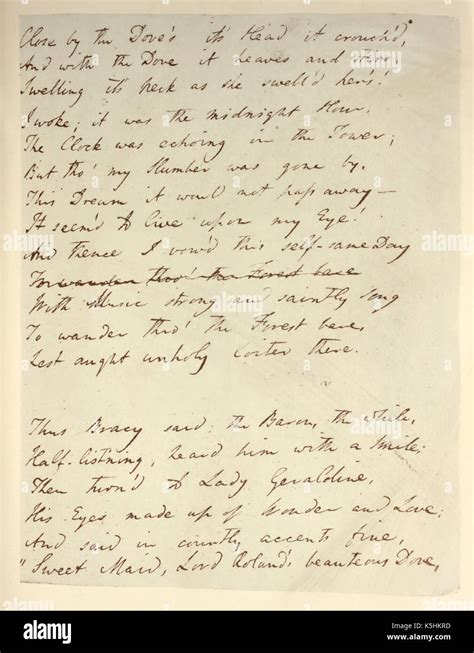 Close by the Dove's it's Head it crouch'd,
And with the Dove it heaves and stirs,
Swelling it's neck as she swell'd her's!
I woke; it was the midnight Hour,
The Clock was echoing in the Tower;
But tho' my Slumber was gone by,
This Dream it would not pass away—
It seem'd to live upon my Eye!
And thence I vow'd this self-same Day
To wander thro' the Forest bare
With Music strong and saintly Song
To wander thro' the Forest bare,
Lest aught unholy loiter there.
Thus Bracy said: the Baron, the while,
Half-listning, heard him with a Smile;
Then turn'd to Lady Geraldine,
His Eyes made up of Wonder and Love;
And said in courtly accents fine,
"Sweet Maid, Lord Roland's beauteous Dove,
alamy stock photo
K5HKRD
www.alamy.com